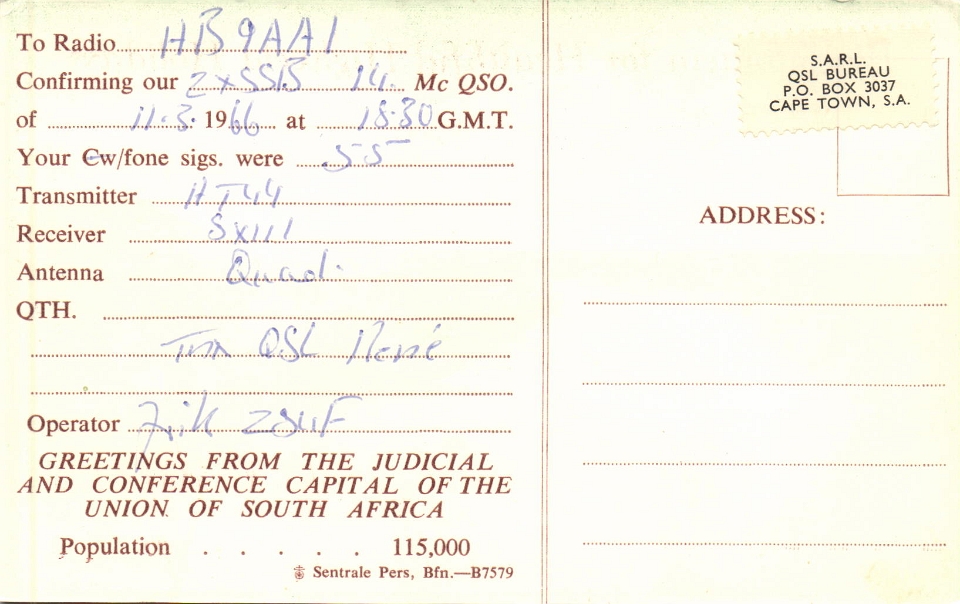 To Radio HB9AAI
Confirming our 2xSSB 14. Mc QSO.
of 11.3. 1966 at 18.30 G.M.T.
Your Cw/fone sigs. were 55
Transmitter HT44
Receiver SX111
Antenna Quad.
QTH.
Tnx QSL René
Operator ZS4F
GREETINGS FROM THE JUDICIAL
AND CONFERENCE CAPITAL OF THE
UNION OF SOUTH AFRICA
Population . . . . . 115,000
Sentrale Pers, Bfn.—B7579
S.A.R.L.
QSL BUREAU
P.O. BOX 3037
CAPE TOWN, S.A.
ADDRESS: